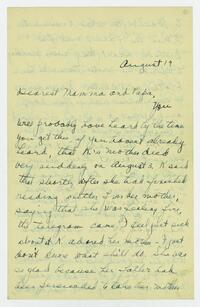 August 19
Dearest Mamma and Papa,
You
have probably heard by the time
you get this if you haven't already
heard, that K's mother died
very suddenly on August 3. K said
that shortly after she had finished
reading articles from her mother,
saying that she was feeling fine,
the telegram came. I feel just sick
about it. K. adored her mother - I just
don't know what she'll do. She was
so
because her father
her
to
her mother